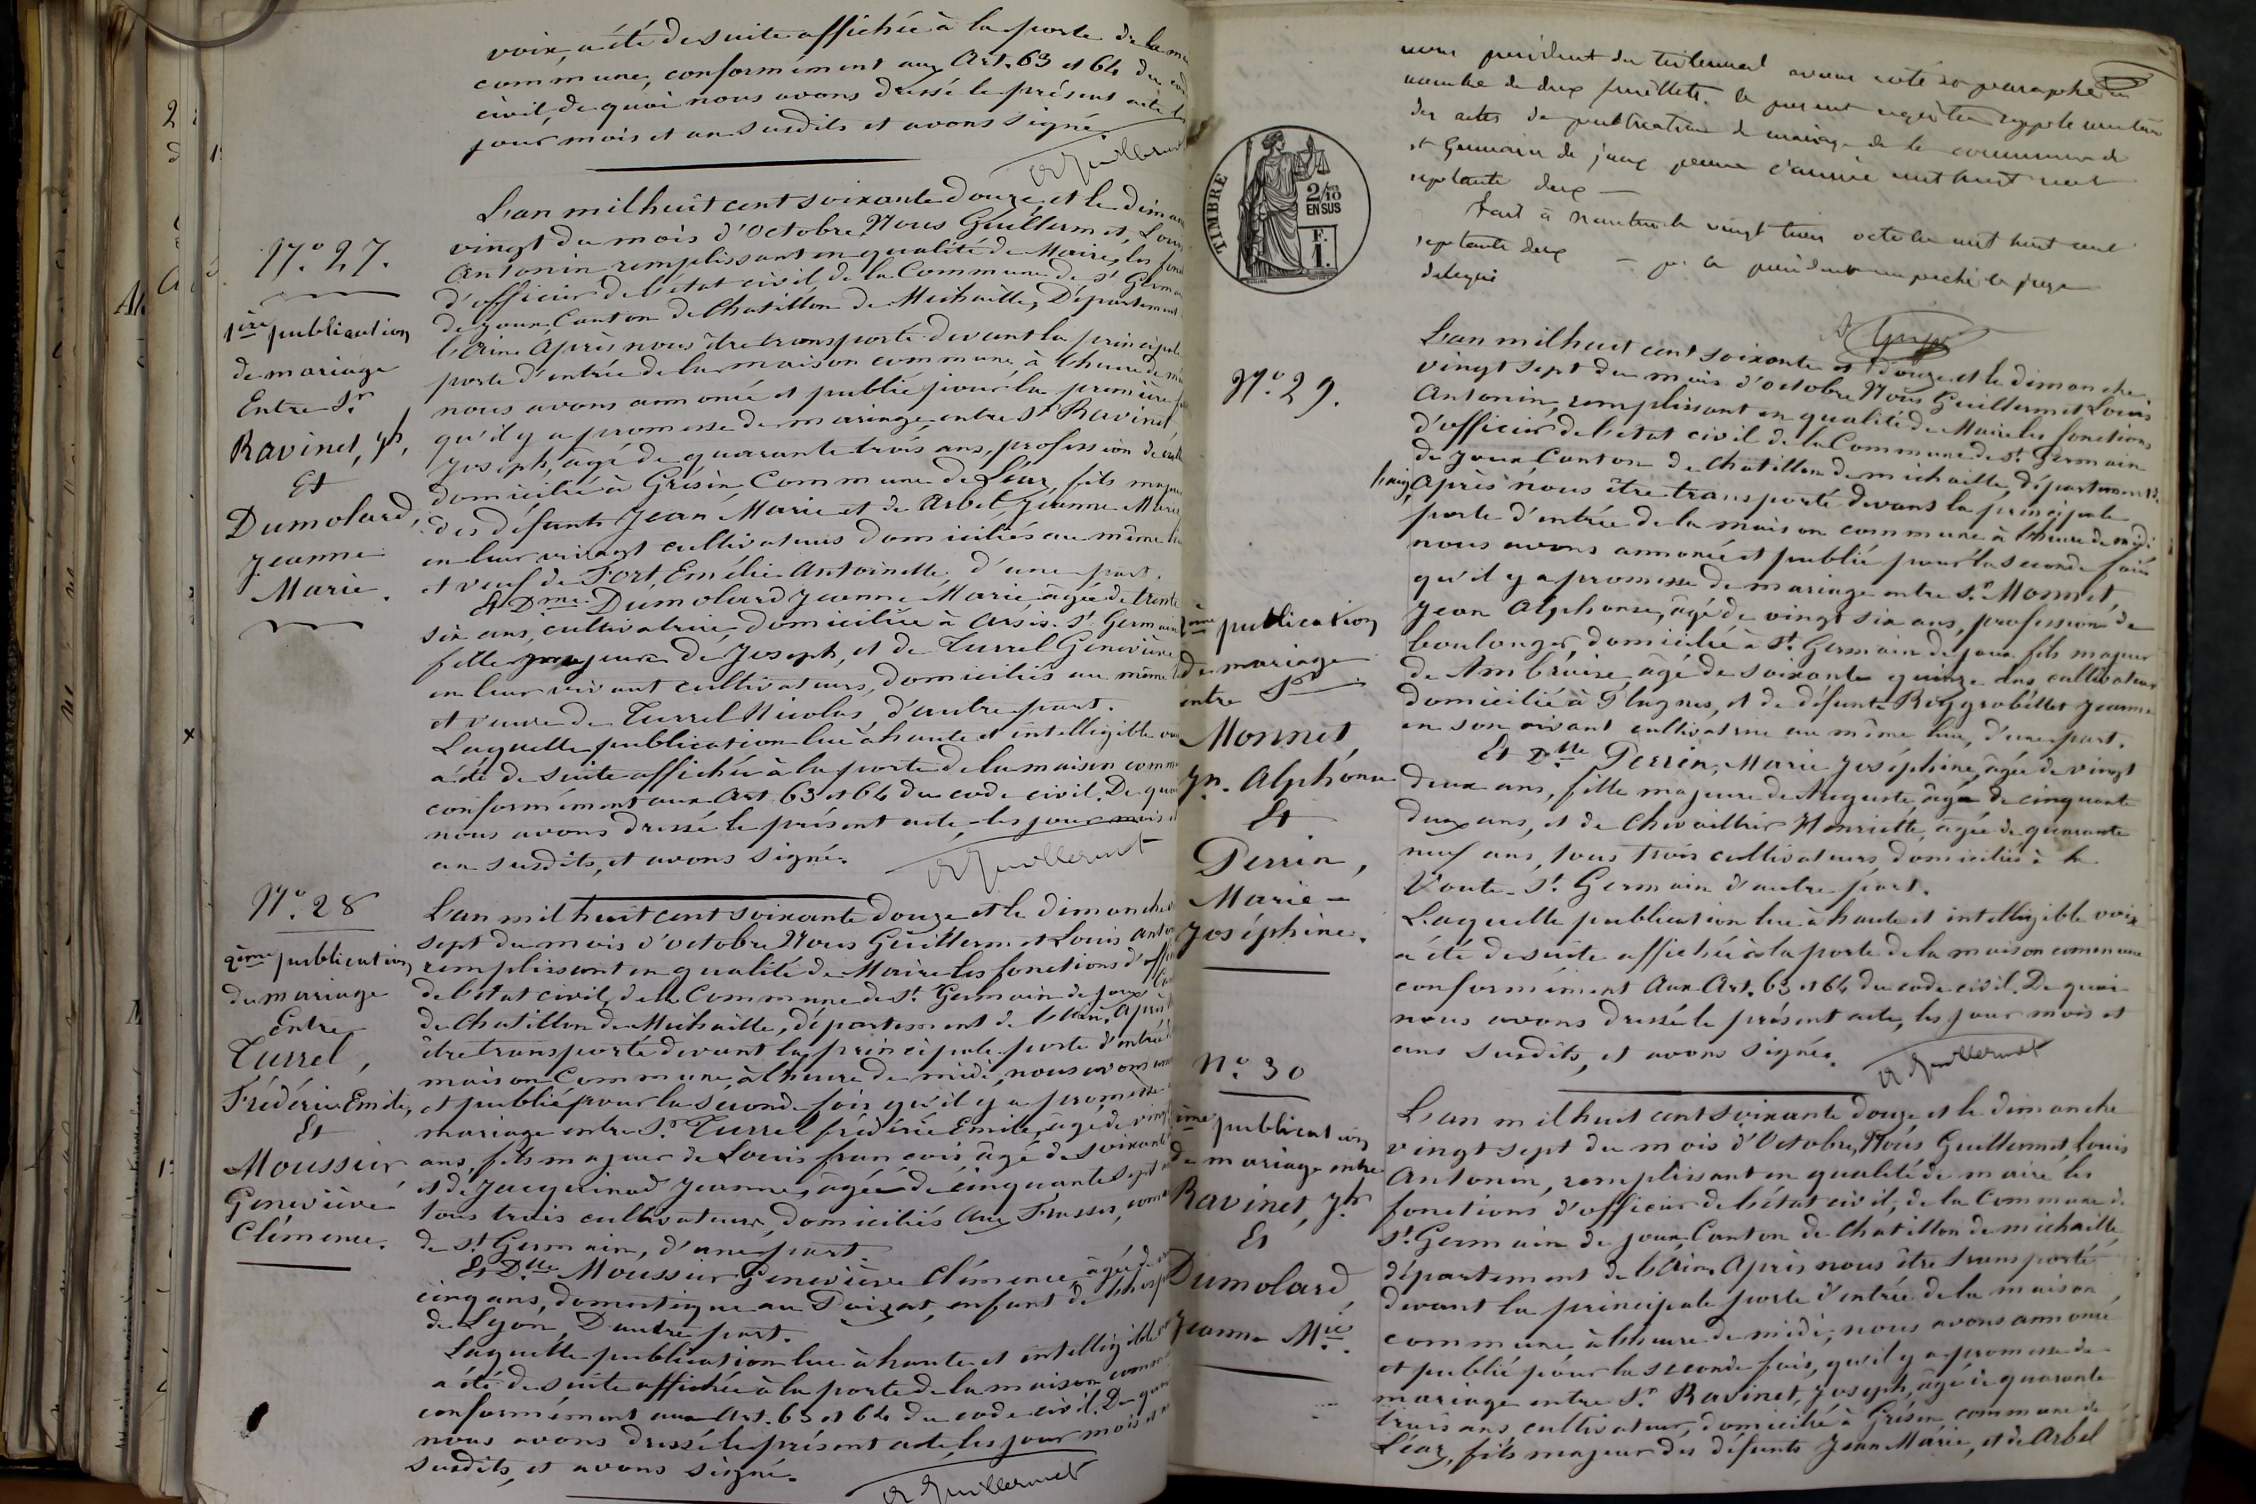 voix, a été de suite affichée à la porte de la
commune, conformément aux Art. 63 et 64 du
civil, de quoi nous avons dressé le présent acte les
jour mois et an susdits et avons signé.
Guillermet
N.° 27.
1ère publication
de mariage
Entre Sr
Ravinet, Jh,
Et
Dumolard,
Jeanne
Marie.
L'an mil huit cent soixante douze, et le
vingt du mois d'Octobre Nous Guillermet, Louis
Antonin remplissant en qualité de Maire, les
d'officier de l'état civil, de la Commune de St Germain
de Joux, Canton de Chatillon de Michaille, Département
l'Ain. Après nous être transporté devant la principale
porte d'entrée de la maison commune, à l'heure de
nous avons annoncé et publié pour la première
qu'il y a promesse de mariage entre Sr Ravinet
Joseph, âgé de quarante trois ans, profession de
domicilié à Grésin Commune de Léaz, fils majeur
des défunts Jean Marie et de Arbel, Jeanne Marie
en leur vivant cultivateurs domiciliés au même
et veuf de Fort, Emélie Antoinette, d'une part.
Et Dme Dumolard Jeanne Marie, âgée de trente
six ans, cultivatrice, domiciliée à St Germain
fille majeure de Joseph, et de Turrel Geneviève
en leur vivant cultivateurs, domiciliés au même
et veuve de Turrel Nicolas, d'autre part.
Laquelle publication lue à haute et intelligible
a été de suite affichée à la porte de la maison
conformément aux Art. 63 et 64 du code civil. De quoi
nous avons dressé le présent acte, les jour mois et
an susdits, et avons signé.
Guillermet
N.° 28
2ème publication
de mariage
Entre
Turrel,
Frédéric Emile,
Et
Moussier
Geneviève
Clémence.
L'an mil huit cent soixante douze et le dimanche
sept du mois d'octobre Nous Guillermet Louis
remplissant en qualité de Maire les fonctions
de l'état civil, de la Commune de St. Germain de Joux
de Chatillon de Michaille, département de l'Ain. Après
être transporté devant la principale porte d'entrée
maison Commune, à l'heure de midi, nous avons
et publié pour la seconde fois qu'il y a promesse
mariage entre Sr. Turrel frédéric Emile, âgé de
ans, fils majeur de Louis françois âgé de soixante
et de Jacquinod Jeanne, âgée de cinquante sept
tous trois cultivateurs, domiciliés aux
de St Germain, d'une part.
Et Dlle Moussier Geneviève Clémence, âgée de
cinq ans, domestique au Poizat, enfant de
de Lyon, D'autre part.
Laquelle publication lue à haute et intelligible
a été de suite affichée à la porte de la maison
conformément aux Art. 63 et 64 du code civil. De quoi
nous avons dressé le présent acte, les jour mois et
susdits, et avons signé.
Guillermet
nous président du tribunal avons coté et paraphé
nombre de deux feuillets le présent registre
des actes de publication de mariage de la commune de
St Germain de Joux pour l'année mil huit cent
septante deux
Fait à Nantua le vingt trois octobre mil huit cent
septante deux — pr le président empêché le juge
délégué
TIMBRE
2/10
EN SUS
F.
1.
N.° 29.
2ème publication
de mariage
entre Sr
Monnet,
Jn. Alphonse
Et
Perrin,
Marie —
Joséphine.
L'an mil huit cent soixante et douze et le dimanche
vingt sept du mois d'octobre Nous Guillermet Louis
Antonin, remplissant en qualité de Maire les fonctions
d'officier de l'état civil de la Commune de St. Germain
de Joux Canton de Chatillon de michaille, département de
l'Ain. Après nous être transporté devant la principale
porte d'entrée de la maison commune à l'heure de midi
nous avons annoncé et publié pour la seconde fois
qu'il y a promesse de mariage entre Sr. Monnet,
Jean Alphonse, âgé de vingt six ans, profession de
boulanger, domicilié à St. Germain de joux, fils majeur
de Ambroise âgé de soixante quinze ans cultivateur
domicilié à Plagnes, et de défunte Jeanne
en son vivant cultivatrice au même lieu, d'une part.
Et Dlle Perrin, Marie Joséphine, âgée de vingt
deux ans, fille majeure de Auguste, âgé de cinquante
deux ans, et de Chevallier Henriette, âgée de quarante
neuf ans, tous trois cultivateurs, domiciliés à la
Voute - St. Germain d'autre part.
Laquelle publication lue à haute et intelligible voix
a été de suite affichée à la porte de la maison commune
conformément Aux Art. 63 et 64 du code civil. De quoi
nous avons dressé le présent acte, les jour mois et
ans susdits, et avons signés.
Guillermet
N.° 30
ème publication
de mariage entre
Ravinet, Jh
Et
Dumolard
Jeanne Mie.
L'an mil huit cent soixante douze et le dimanche
vingt sept du mois d'Octobre, Nous Guillermet, Louis
Antonin, remplissant en qualité de maire les
fonctions d'officier de l'état civil, de la Commune de
St. Germain de joux, Canton de Chatillon de michaille,
département de l'Ain. Après nous être transporté
devant la principale porte d'entrée de la maison
commune à l'heure de midi, nous avons annoncé
et publié pour la seconde fois, qu'il y a promesse de
mariage entre Sr. Ravinet, Joseph, âgé de quarante
trois ans, cultivateur, domicilié à Grésin, commune de
Léaz, fils majeur des défunts Jean Marie, et de Arbel